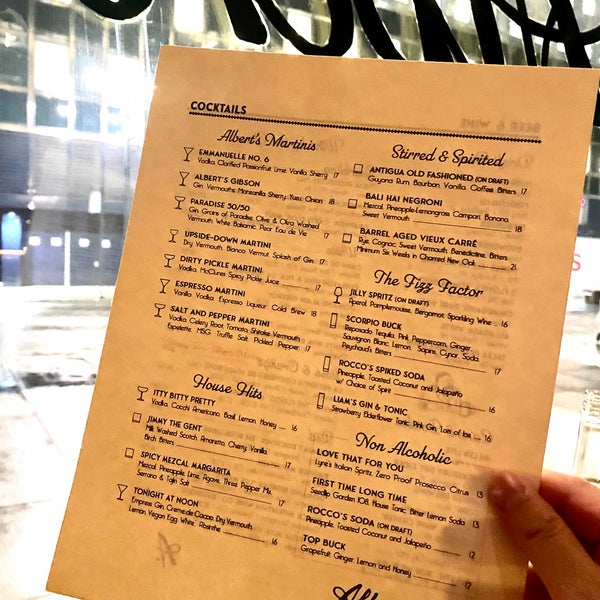 COCKTAILS
Albert's Martinis
EMMANUELLE NO. 6
Vodka, Clarified Passionfruit, Lime, Vanilla, Sherry 17
ALBERT'S GIBSON
Gin, Vermouth, Manzanilla Sherry, Yuzu, Onion 18
PARADISE 50/50
Gin, Grains of Paradise, Olive & Okra Washed
Vermouth, White Balsamic, Pear Eau de Vie 17
UPSIDE-DOWN MARTINI
Dry Vermouth, Bianco Vermut, Splash of Gin 17
DIRTY PICKLE MARTINI
Vodka, McClures Spicy Pickle Juice 17
ESPRESSO MARTINI
Vanilla Vodka, Espresso Liqueur, Cold Brew 18
SALT AND PEPPER MARTINI
Vodka, Celery Root, Tomato, Shiitake, Vermouth,
Espelette, MSG, Truffle Salt, Pickled Pepper 17
House Hits
ITTY BITTY PRETTY
Vodka, Cocchi Americano, Basil, Lemon, Honey 16
JIMMY THE GENT
Milk Washed Scotch, Amaretto, Cherry, Vanilla,
Birch Bitters 17
SPICY MEZCAL MARGARITA
Mezcal, Pineapple, Lime, Agave, Three Pepper Mix,
Serrano & Tajin Salt 17
TONIGHT AT NOON
Empress Gin, Creme de Cacao, Dry Vermouth,
Lemon, Vegan Egg White, Absinthe 16
Stirred & Spirited
ANTIGUA OLD FASHIONED (ON DRAFT)
Guyana Rum, Bourbon, Vanilla, Coffee, Bitters 17
BALI HAI NEGRONI
Mezcal, Pineapple-Lemongrass Campari, Banana,
Sweet Vermouth 18
BARREL AGED VIEUX CARRÉ
Rye, Cognac, Sweet Vermouth, Benedictine, Bitters
Minimum Six Weeks in Charred New Oak 21
The Fizz Factor
JILLY SPRITZ (ON DRAFT)
Aperol, Pomplamousse, Bergamot, Sparkling Wine 16
SCORPIO BUCK
Reposado Tequila, Pink Peppercorn, Ginger,
Sauvignon Blanc, Lemon, Sapins, Cynar, Soda,
Peychaud's Bitters 17
ROCCO'S SPIKED SODA
Pineapple, Toasted Coconut and Jalapeño
w/ Choice of Spirit 16
LIAM'S GIN & TONIC
Strawberry Elderflower Tonic, Pink Gin, Lots of Ice 16
Non Alcoholic
LOVE THAT FOR YOU
Lyre's Italian Spritz, Zero Proof Prosecco, Citrus 13
FIRST TIME LONG TIME
Seedlip Garden 108, House Tonic, Bitter Lemon Soda 13
ROCCO'S SODA (ON DRAFT)
Pineapple, Toasted Coconut and Jalapeño 12
TOP BUCK
Grapefruit, Ginger, Lemon and Honey 12